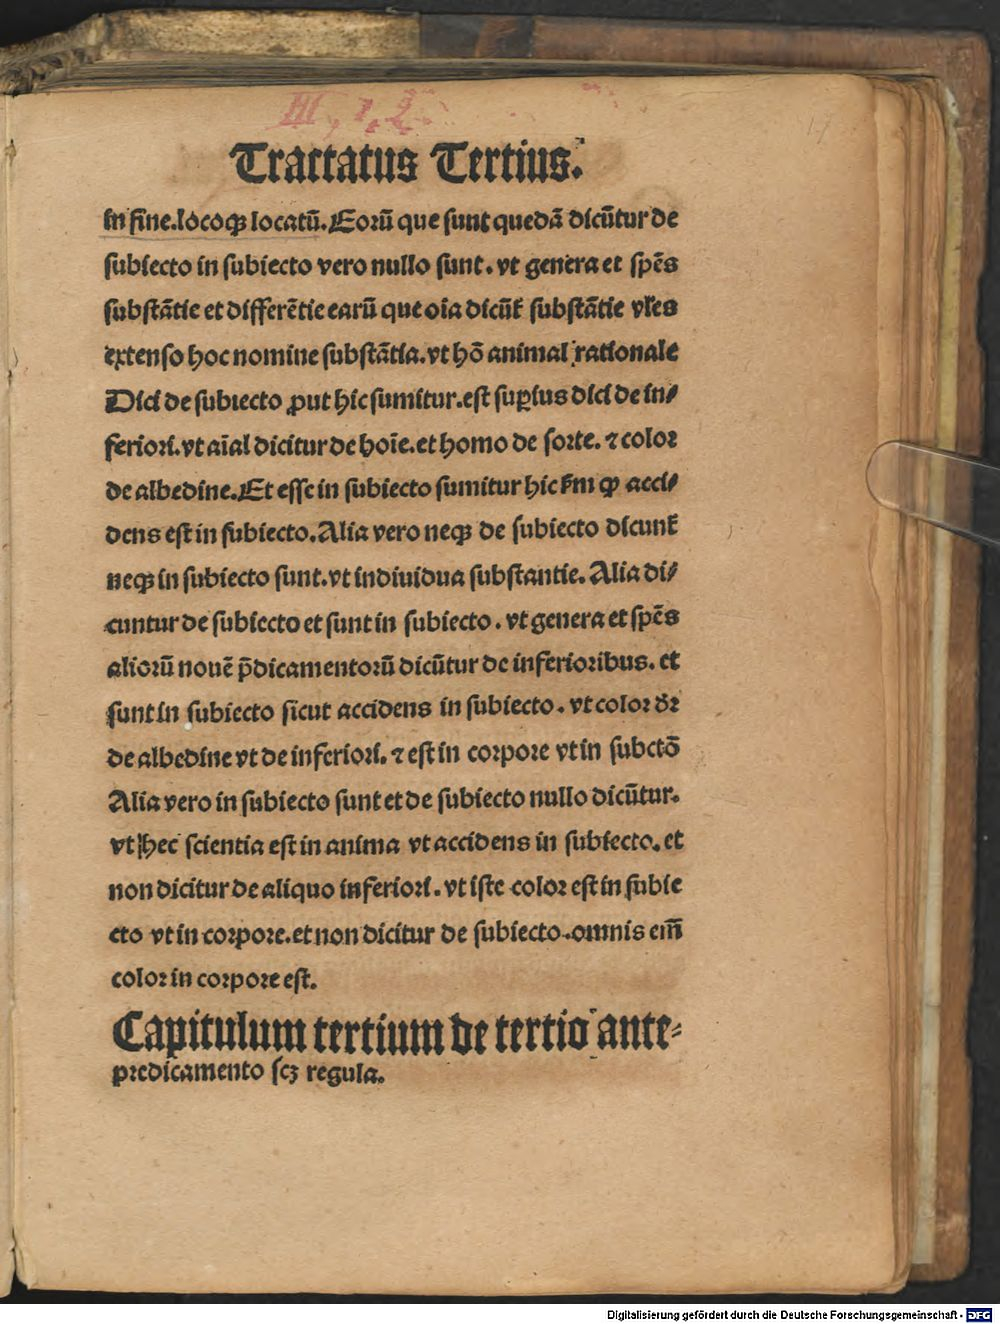 III, 1, 2
17
Tractatus Tertius.
in fine. locoqꝫ locatū. Eoꝛū que sunt quedā dicūtur de
subiecto in subiecto vero nullo sunt. vt genera et spēs
substātie et differētie earū que oīa dicūt᷑ substātie vl̓es
extenso hoc nomine substātia. vt hō animal rationale
Dici de subiecto ꝓut hic sumitur. est supꝑius dici de in⸗
ferioꝛi. vt aīal dicitur de hoīe. et homo de soꝛte. ⁊ coloꝛ
de albedine. Et esse in subiecto sumitur hic ẜm ꝙ acci⸗
dens est in subiecto. Alia vero neqꝫ de subiecto dicunt᷑
neqꝫ in subiecto sunt. vt indiuidua substantie. Alia di⸗
cuntur de subiecto et sunt in subiecto. vt genera et spēs
alioꝛū nouē p̄dicamentoꝛū dicūtur de inferioꝛibus. et
sunt in subiecto sicut accidens in subiecto. vt coloꝛ dꝛ̄
de albedine vt de inferioꝛi. ⁊ est in coꝛpoꝛe vt in subctō
Alia vero in subiecto sunt et de subiecto nullo dicūtur.
vt hec scientia est in anima vt accidens in subiecto. et
non dicitur de aliquo inferioꝛi. vt iste coloꝛ est in subie
cto vt in coꝛpoꝛe. et non dicitur de subiecto. omnis em̄
coloꝛ in coꝛpoꝛe est.
Capitulum tertium de tertio ante⸗
pꝛedicamento scꝫ regula.
Digitalisierung gefördert durch die Deutsche Forschungsgemeinschaft - DFG